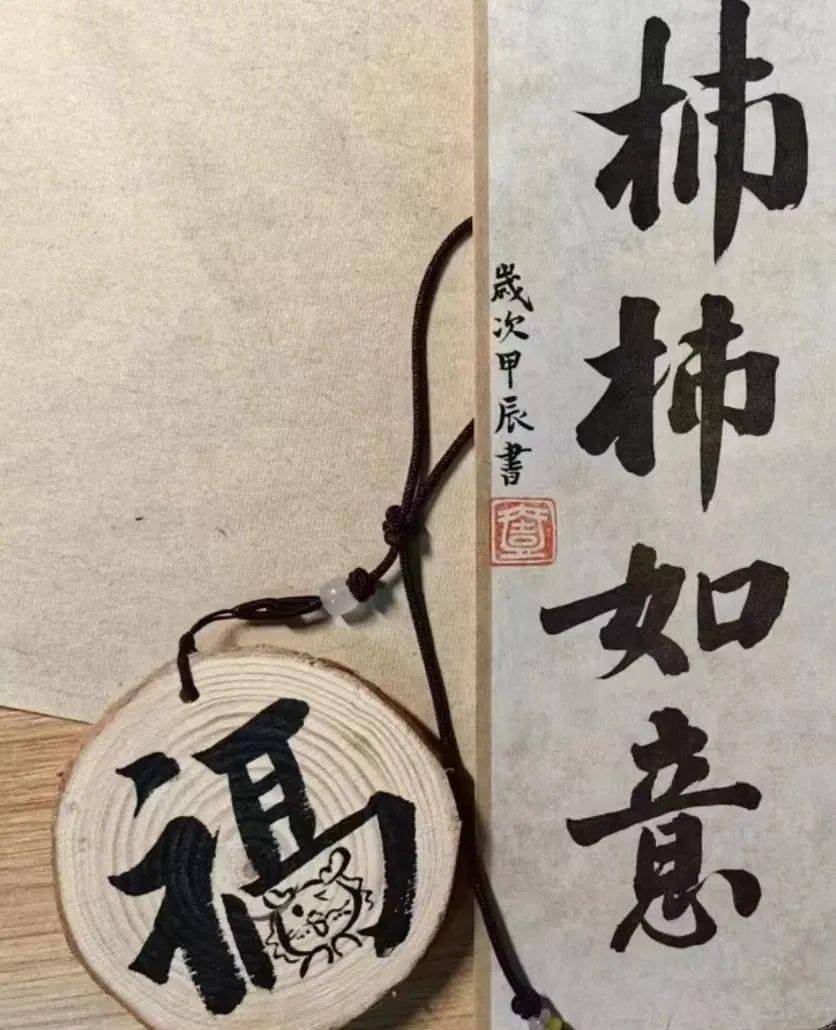 柿柿如意
歲次甲辰書
福